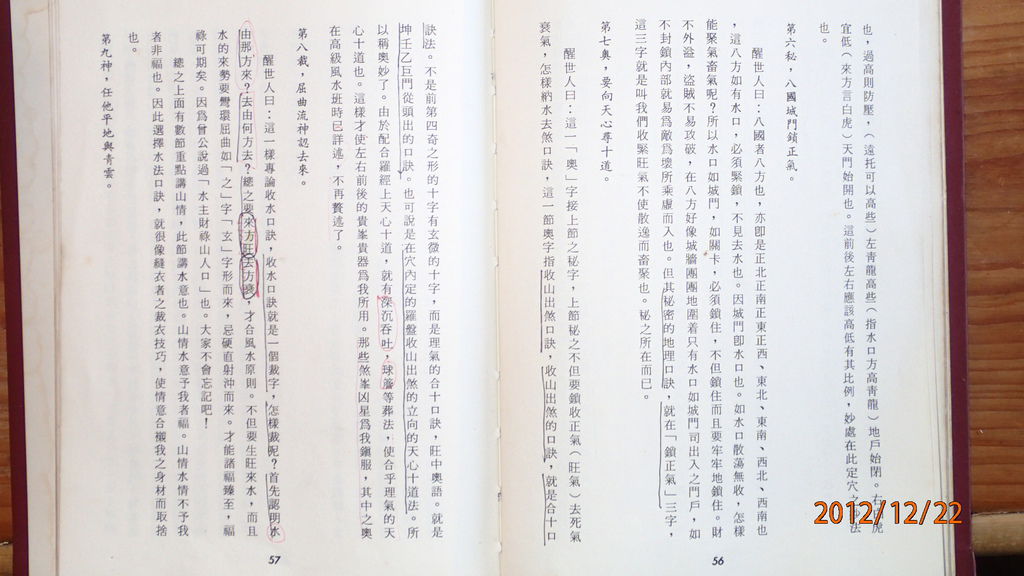 也，過高則防壓，（遠托可以高些）左青龍高些（指水口方高青龍）地戶始閉。右
宜低（來方言白虎）天門始開也。這前後左右應該高低有其比例，妙處在此定穴之
也。
第六秘，八國城門鎖正氣。
醒世人曰：八國者八方也，亦卽是正北正南正東正西、東北、東南、西北、西南也
，這八方如有水口，必須緊鎖，不見去水也。因城門卽水口也。如水口散蕩無收，怎樣
能聚氣畜氣呢？所以水口如城門，如關卡，必須鎖住，不但鎖住而且要牢牢地鎖住。財
不外溢，盜賊不易攻破，在八方好像城牆團團地圍着只有水口如城門司出入之門戶，如
不封鎖內部就易爲敵爲壞所乘慮而入也。但其秘密的地理口訣，就在「鎖正氣」三字，
這三字就是叫我們收緊旺氣不使散逸而畜聚也。秘之所在而已。
第七奧，要向天心尋十道。
醒世人曰：這一「奧」字接上節之秘字，上節秘之不但要鎖收正氣（旺氣）去死氣
衰氣，怎樣納水去煞口訣，這一節奧字指收山出煞口訣，收山出煞的口訣，就是合十口
56
訣法。不是前第四奇之形的十字有玄微的十字，而是理氣的合十口訣，旺中奧語。就是
坤壬乙巨門從頭出的口訣。也可說是在穴內定的羅盤收山出煞的立向的天心十道法。所
以稱奧妙了。由於配合羅經上天心十道，就有深沉吞吐，球簷等葬法，使合乎理氣的天
心十道也。這樣才使左右前後的貴峯貴器爲我所用。那些煞峯凶星爲我鎭服，其中之奧
在高級風水班時已詳述，不再贅述了。
第八裁，屈曲流神認去來。
醒世人曰：這一樣專論收水口訣，收水口訣就是一個裁字，怎樣裁呢？首先認明水
由那方來？去由何方去？總之要來方旺去方衰，才合風水原則。不但要生旺來水，而且
水的來勢要彎環屈曲如「之」字「玄」字形而來，忌硬直射沖而來。才能諸福臻至，福
祿可期矣。因爲曾公說過「水主財祿山人口」也。大家不會忘記吧！
總之上面有數節重點講山情，此節講水意也。山情水意予我者福。山情水情不予我
者非福也。因此選擇水法口訣，就很像縫衣者之裁衣技巧，使情意合襯我之身材而取捨
也。
第九神，任他平地與青雲。
57
2012/12/22